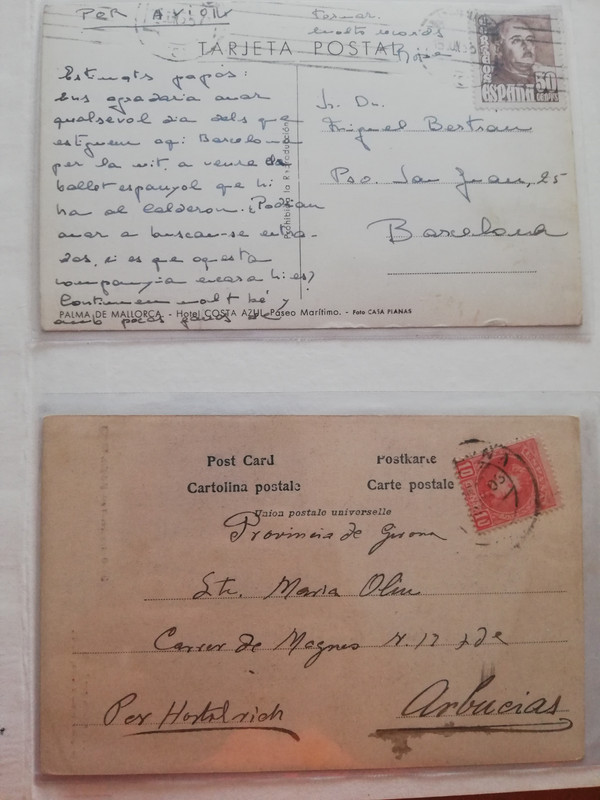 PER AVIÓN
tornar.
molts records
TARJETA POSTAL
CORREOS
ESPAÑA
50
CENTS
Estimats papás:
Ens agradaria anar
qualsevol dia dels que
estiguem aqui Barcelona
per la nit, a veure
ballet espanyol que hi
ha al Calderon. Podrían
anar a buscar-se entra-
das, si es que aquesta
companyia encara hi es?
Continuem molt bé y
amb pocas ganas de
Prohibida la Reproducción
Sr. Dn.
Miguel Bertran
Pso. San Juan, 25
Barcelona
PALMA DE MALLORCA. - Hotel COSTA AZUL. Paseo Marítimo. - Foto CASA PLANAS
Post Card
Postkarte
Cartolina postale
Carte postale
Union postale universelle
10
Provincia de Gerona
Sta. Maria Oliu
Carrer de Magnes N. 17
Per Hostalrich
Arbucias